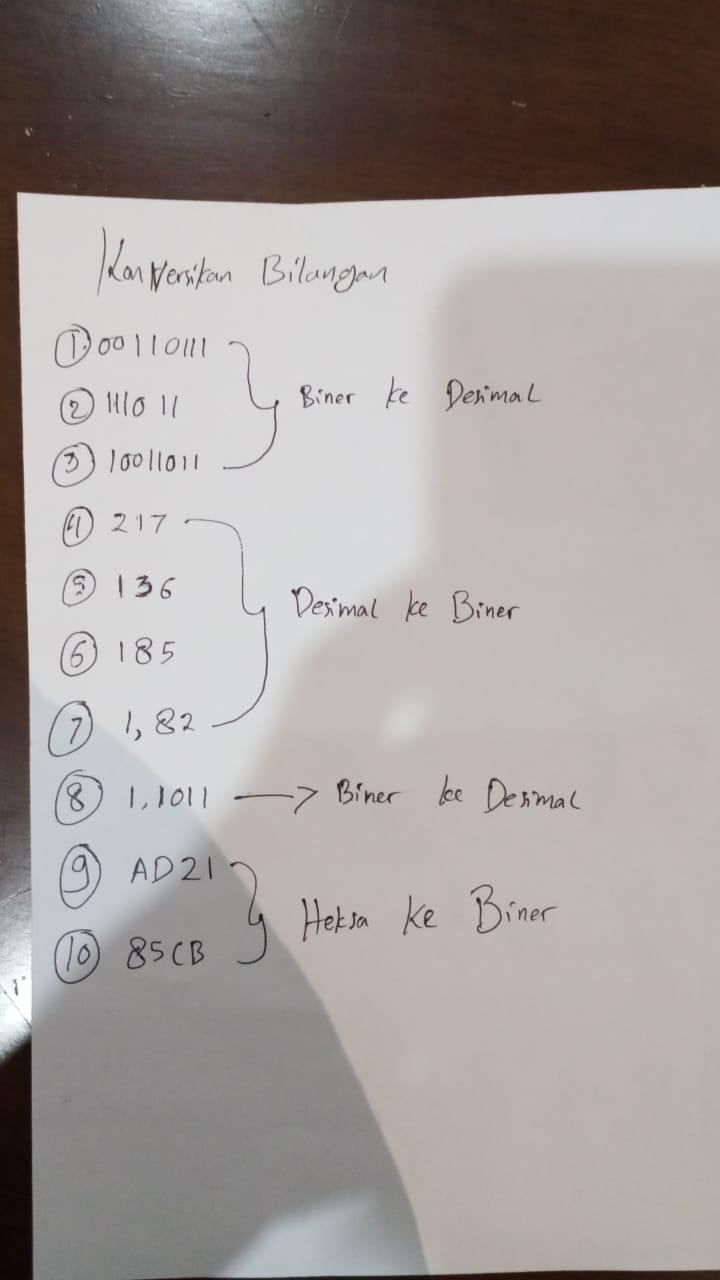 Konversikan Bilangan
1. 00110111
2 111011
3 10011011
Biner ke Desimal
4 217
5 136
6 185
7 1,82
Desimal ke Biner
8 1,1011 → Biner ke Desimal
9 AD21
10 85CB
Heksa ke Biner